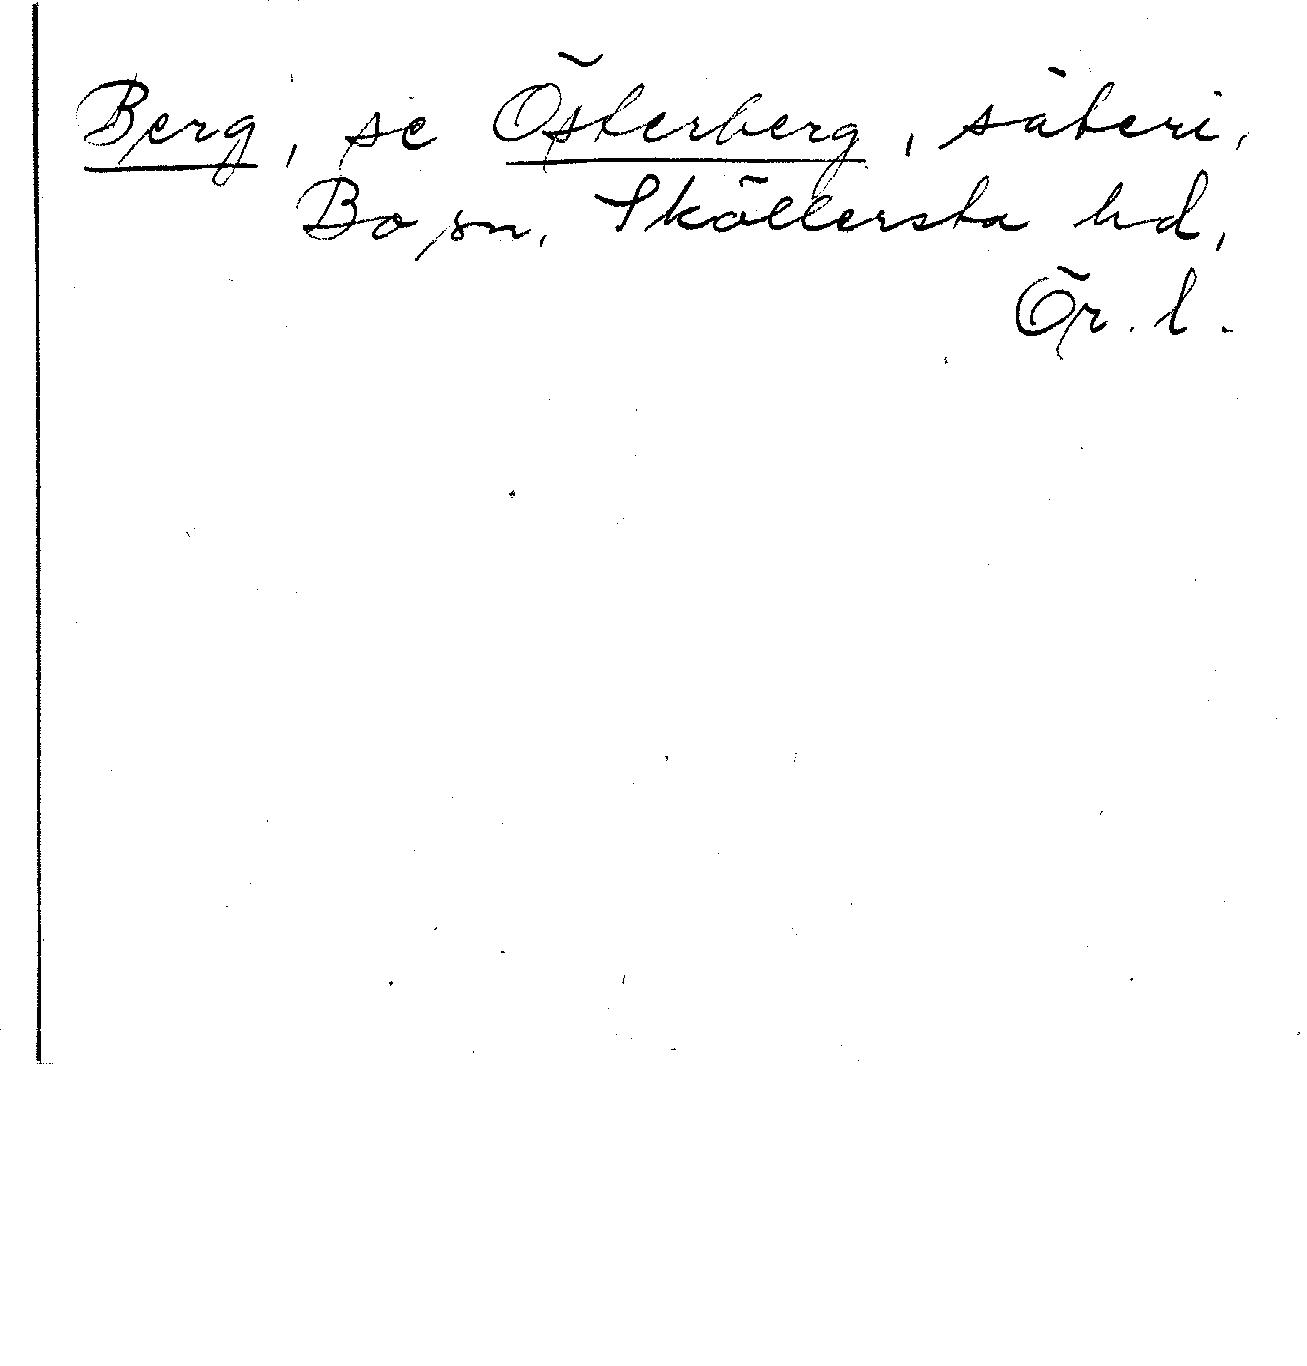 Berg, se Österberg, säteri,
Bo sn, Sköllersta hd,
Ör. l.